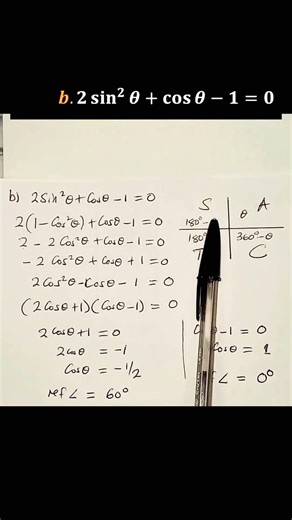 b. 2 sin² θ + cos θ − 1 = 0
b) 2Sin²θ + Cosθ − 1 = 0
2(1 − Cos²θ) + Cosθ − 1 = 0
2 − 2 Cos²θ + Cosθ − 1 = 0
− 2 Cos²θ + Cosθ + 1 = 0
2Cos²θ − Cosθ − 1 = 0
(2Cosθ + 1)(Cosθ − 1) = 0
2Cosθ + 1 = 0
2Cosθ = −1
Cosθ = −1/2
ref∠ = 60°
S
A
180° −
θ
180°
360° − θ
T
C
θ − 1 = 0
Cosθ = 1
∠ = 0°